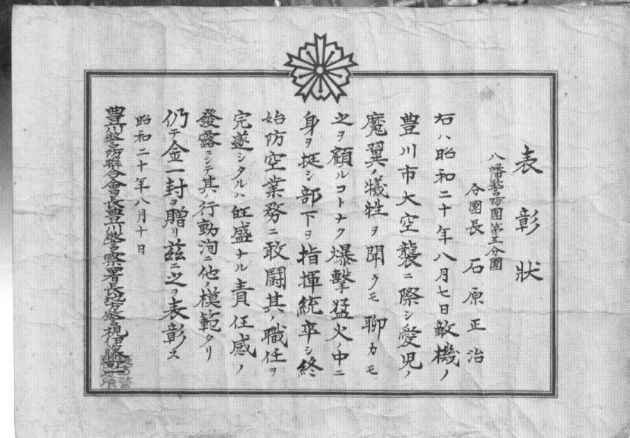 表彰状
八幡警防團第五分團
分團長 石原正治
右ハ昭和二十年八月七日敵機ノ
豊川市大空襲ニ際シ愛児ノ
魔翼ノ犠牲ヲ聞クモ聊カモ
之ヲ顧ルコトナク爆撃猛火ノ中ニ
身ヲ挺シ部下ヲ指揮統率シ終
始防空業務ニ敢闘其ノ職任ヲ
完遂シタルハ旺盛ナル責任感ノ
發露ニシテ其ノ行動洵ニ他ノ模範タリ
仍テ金一封ヲ贈リ茲ニ之ヲ表彰ス
昭和二十年八月十日
豊川警防聯合會長豊川警察署長地方警視伊藤